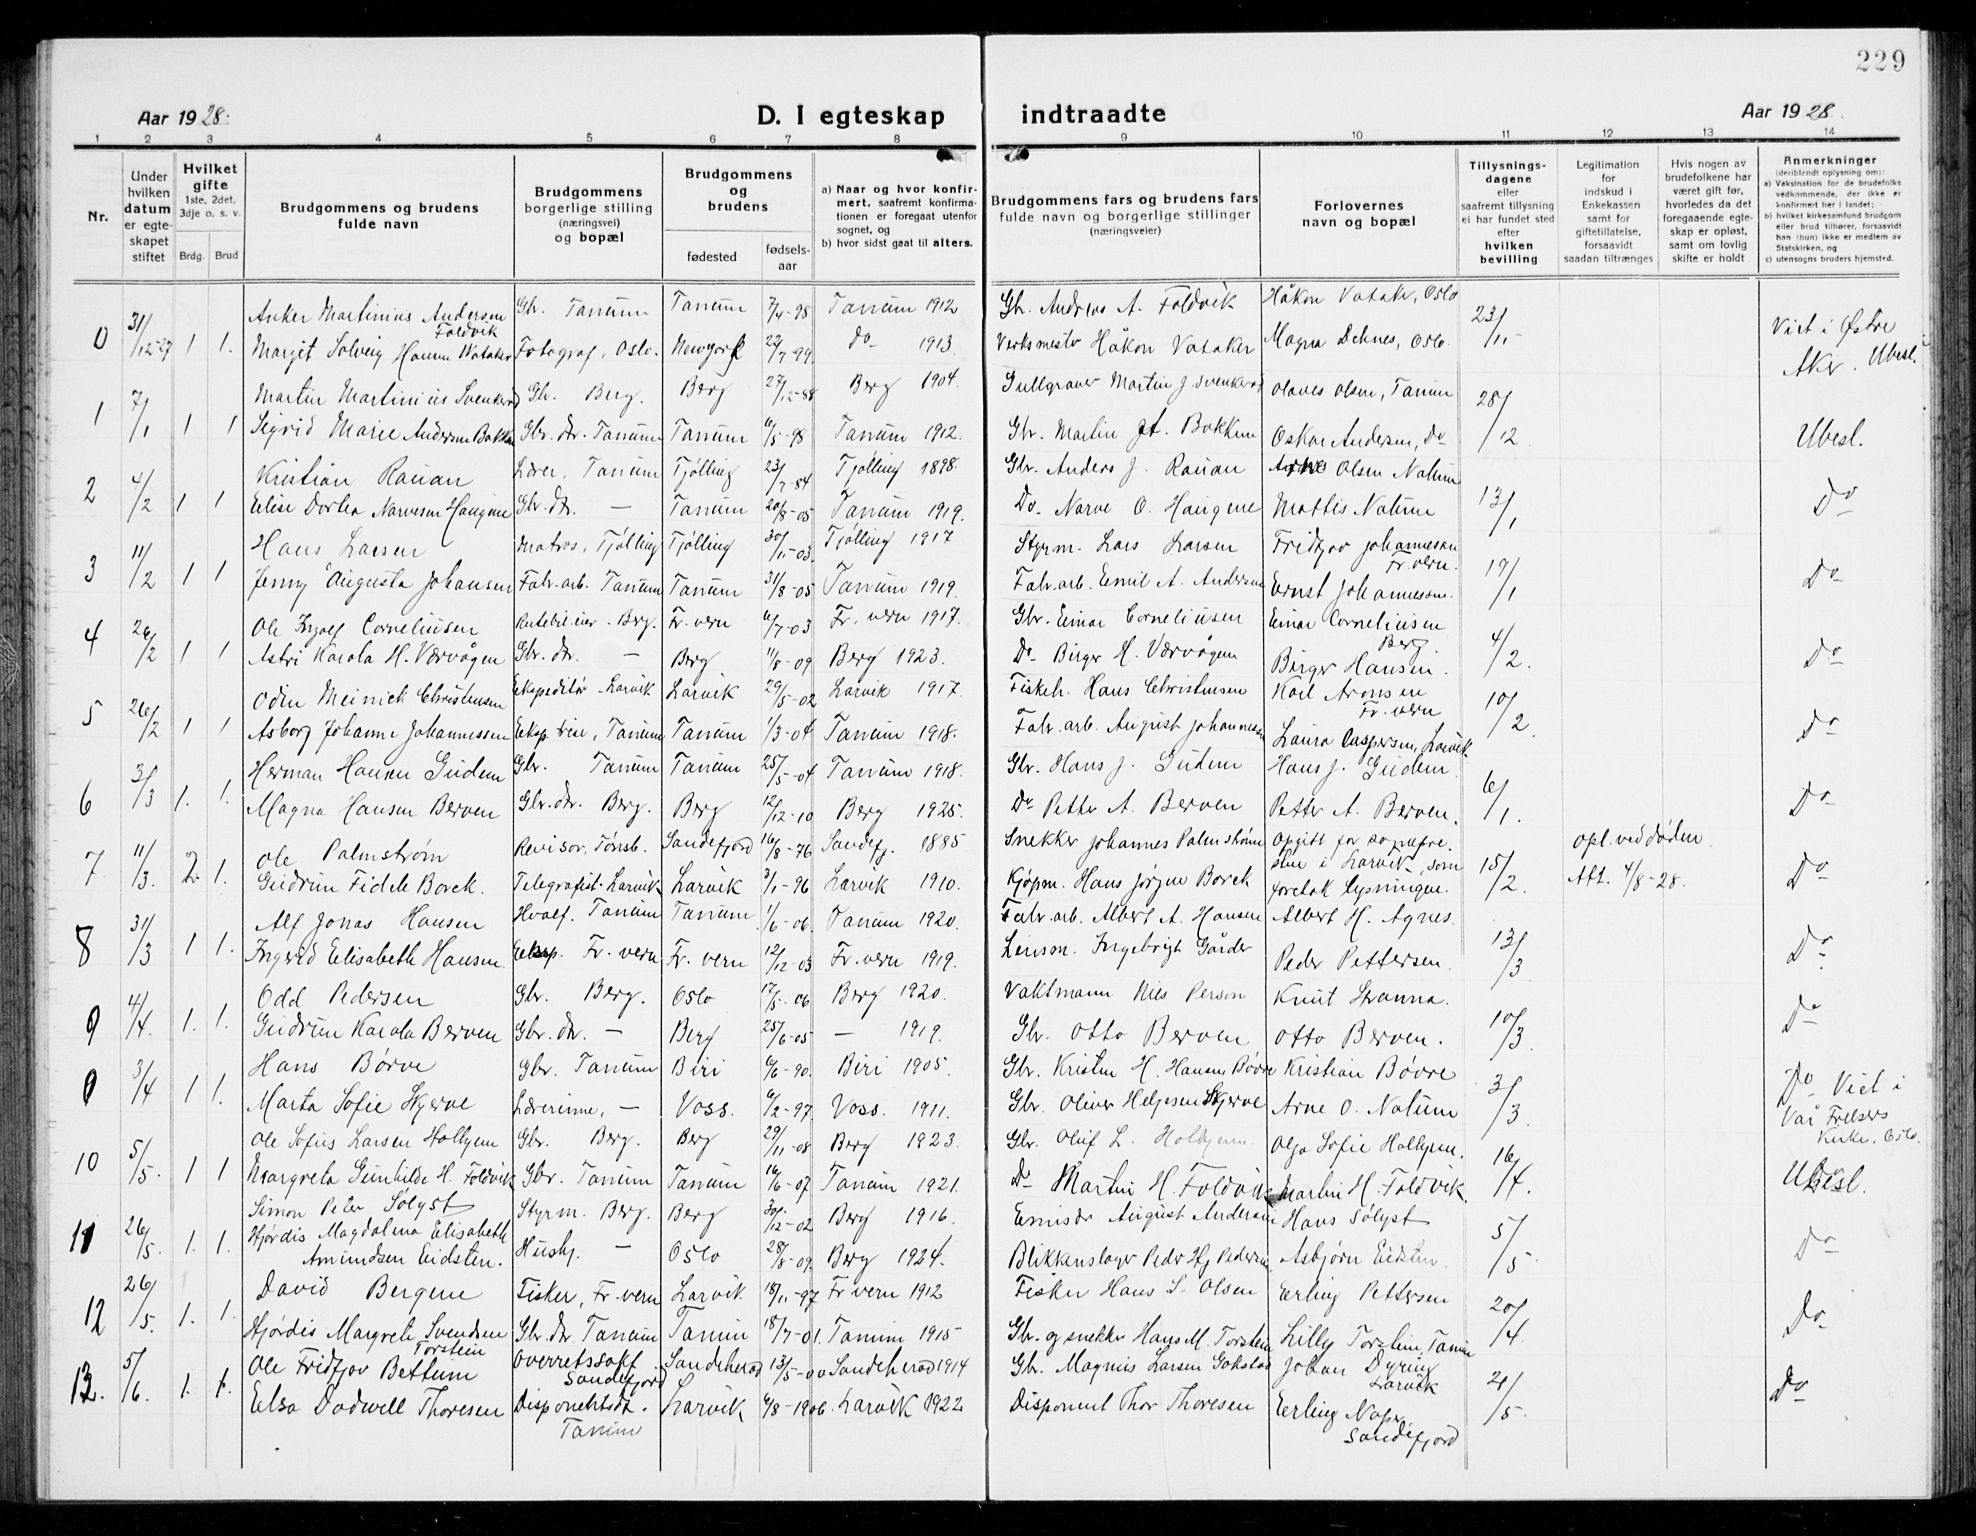 229
Aar 1928. D. I egteskap indtraadte Aar 1928.
1 2 3 4 5 6 7 8 9 10 11 12 13 14
Nr.
Under hvilken datum er egteskapet stiftet
Hvilket gifte 1ste, 2det, 3dje o. s. v.
Brdg. Brud
Brudgommens og brudens fulde navn
Brudgommens borgerlige stilling (næringsvei) og bopæl
Brudgommens og brudens
fødested
fødsels-aar
a) Naar og hvor konfirmert, saafremt konfirmationen er foregaat utenfor sognet, og
b) hvor sidst gaat til alters.
Brudgommens fars og brudens fars fulde navn og borgerlige stillinger (næringsveier)
Forlovernes navn og bopæl
Tillysningsdagene eller saafremt tillysning ei har fundet sted efter hvilken bevilling
Legitimation for indskud i Enkekassen samt for giftetilladelse, forsaavidt saadan tiltrænges
Hvis nogen av brudefolkene har været gift før, hvorledes da det foregaaende egteskap er opløst, samt om lovlig skifte er holdt
Anmerkninger (deriblendt oplysning om):
a) Vaksination for de brudefolks vedkommende, der ikke er konfirmert her i landet;
b) hvilket kirkesamfund brudgom eller brud tilhører, forsaavidt han (hun) ikke er medlem av Statskirken, og
c) utensogns bruders hjemsted.
0 31/12-27 1 1. Anker Martinius Andersen Foldvik Gbr. Tanum Tanum 7/4-98 Tanum 1912 Gbr. Andreas A. Foldvik Håkon Vataker, Oslo 23/11 Viet i Østre Aker. Ubesl.
Margit Solveig Hansen Vataker Fotograf, Oslo. Newyork 22/7-99. Do 1913. Verksmester Håkon Vataker Magna Deknes, Oslo.
1 7/1 1 1 Martin Martinius Svenkerød Gbr. Berg. Berg 27/12-88 Berg 1904. Gullgraver Martin J. Svenkerød Olaves Olsen, Tanum 28/12 Ubesl.
Sigrid Marie Andersen Bakken Gbr. dtr. Tanum Tanum 6/5-98 Tanum 1912. Gbr. Martin A. Bakken Oskar Andersen, Do
2 4/2 1 1 Kristian Rauan Lærer, Tanum Tjølling 23/7-84 Tjølling 1898. Gbr. Anders J. Rauan Olsen Nalum 13/1 Do
Elise Dortea Narvesen Haugene Gbr. dtr. — Tanum 20/8-05 Tanum 1919. Do Narve O. Haugene Mattis Nalum
3 11/2 1 1 Hans Larsen Matros, Tjølling Tjølling 30/11-03. Tjølling 1917 Styrm. Lars Larsen Fridtjov Johannessen Fr. vern. 19/1 Do
Jenny Augusta Johansen Fabr. arb. Tanum Tanum 31/8-05 Tanum 1919. Fabr. arb. Emil A. Andersen Ernst Johannessen.
4 26/2 1 1 Ole Ingolf Corneliusen Rutebileier - Berg. Fr. vern 6/7-03 Fr. vern 1917. Gbr. Einar Corneliusen Einar Corneliusen Berg 4/2. Do
Astri Karola H. Værvågen Gbr. dtr. — Berg 11/8-09 Berg 1923. Do Birger H. Værvågen Birger Hansen.
5 26/2 1 1 Odin Meinich Christensen Ekspeditør - Larvik Larvik 29/5-02 Larvik 1917. Fiskeh. Hans Christensen Karl Aronsen Fr. vern 10/2. Do
Asborg Johanne Johannessen Eksp. trise, Tanum Tanum 1/3-04 Tanum 1918. Fabr. arb. August Johannessen Laura Caspersen, Larvik
6 3/3 1. 1. Herman Hansen Gudem Gbr. Tanum Tanum 25/5-04 Tanum 1918. Gbr. Hans J. Gudem Hans J. Gudem. 6/1. Do
Magna Hansen Berven Gbr. dtr. Berg. Berg 12/12-10 Berg 1925. Do Petter A. Berven Petter A. Berven.
7 11/3. 2. 1. Ole Palmstrøm Revisor, Tønsb. Sandefjord 16/8-76 Sandefj. 1885 Snekker Johannes Palmstrøm Opgitt for sognepresten i Larvik, som foretok lysningen. 15/2. Opl. ved døden Att. 4/8-28. Do
Gudrun Fidele Borck. Telegrafist - Larvik Larvik 3/1-96 Larvik 1910. Kjøpm. Hans Jørgen Borck
8 31/3 1 1. Alf Jonas Hansen Hvalf. Tanum Tanum 1/6-06. Tanum 1920. Fabr. arb. Albert A. Hansen Albert H. Agnes. 13/3 Do
Ingerid Elisabeth Hansen Eksp. Fr. vern Fr. vern 12/12-03 Fr. vern 1919. Lensm. Ingebrigt Gårder Peder Pettersen.
9 4/4. 1. 1. Odd Pedersen Gbr. Berg. Oslo 17/5-06 Berg 1920. Vaktmann Nils Person Knut Stranna. 10/3. Do
Gudrun Karola Berven Gbr. dtr. — Berg 25/6-05 — 1919. Gbr. Otto Berven Otto Berven.
0 3/4 1 1. Hans Børve Gbr. Tanum Biri 6/6-90. Biri 1905. Gbr. Kristen H. Hansen Børve Kristian Bøvre 3/3 Do Viet i Vår Frelsers Kirke, Oslo.
Marta Sofie Skjerve Lærerinne, — Voss. 6/2-97 Voss. 1911. Gbr. Oliver Helgesen Skjerve Arne O. Nalum
10 5/5. 1 1 Ole Sofus Larsen Holhjem Gbr. Berg. Berg 29/11-08 Berg 1923. Gbr. Oluf L. Holhjem Olga Sofie Holhjem. 16/4. Ubesl.
Margreta Gunhilde H. Foldvik Gbr. Tanum Tanum 16/6-07 Tanum 1921. Do Martin H. Foldvik Martin H. Foldvik.
11 26/5. 1. 1. Simon Peter Sølyst Styrm. Berg. Berg 30/12-02 Berg 1916. Emisær August Andersen Hans Sølyst 5/5 Do
Hjørdis Magdalena Elisabeth Amundsen Eidsten. Hush. — Oslo 28/8-09. Berg 1924. Blikkenslager Peder Hj. Pedersen Asbjørn Eidsten.
12 26/5. 1. 1. David Bergene Fisker, Fr. vern Larvik 18/11-97 Fr vern 1912 Fisker Hans S. Olsen Erling Pettersen 20/4. Do
Hjørdis Margrete Svendsen Torstein Gbr. dtr. Tanum Tanum 18/7-01. Tanum 1915 Gbr. og snekker Hans M. Torstein Lilly Torstein, Tanum
13. 5/6. 1. 1. Ole Fridtjov Bettum Overretssakf. Sandefjord Sandeherad 13/5-00 Sandeherad 1914 Gbr. Magnus Larsen Gokstad Johan Dyring Larvik 21/5. Do
Elsa Dodwell Thoresen Disponentdtr. Tanum Larvik 6/8-1906. Larvik 1922 Disponent Thor Thoresen Erling Naper Sandefjord